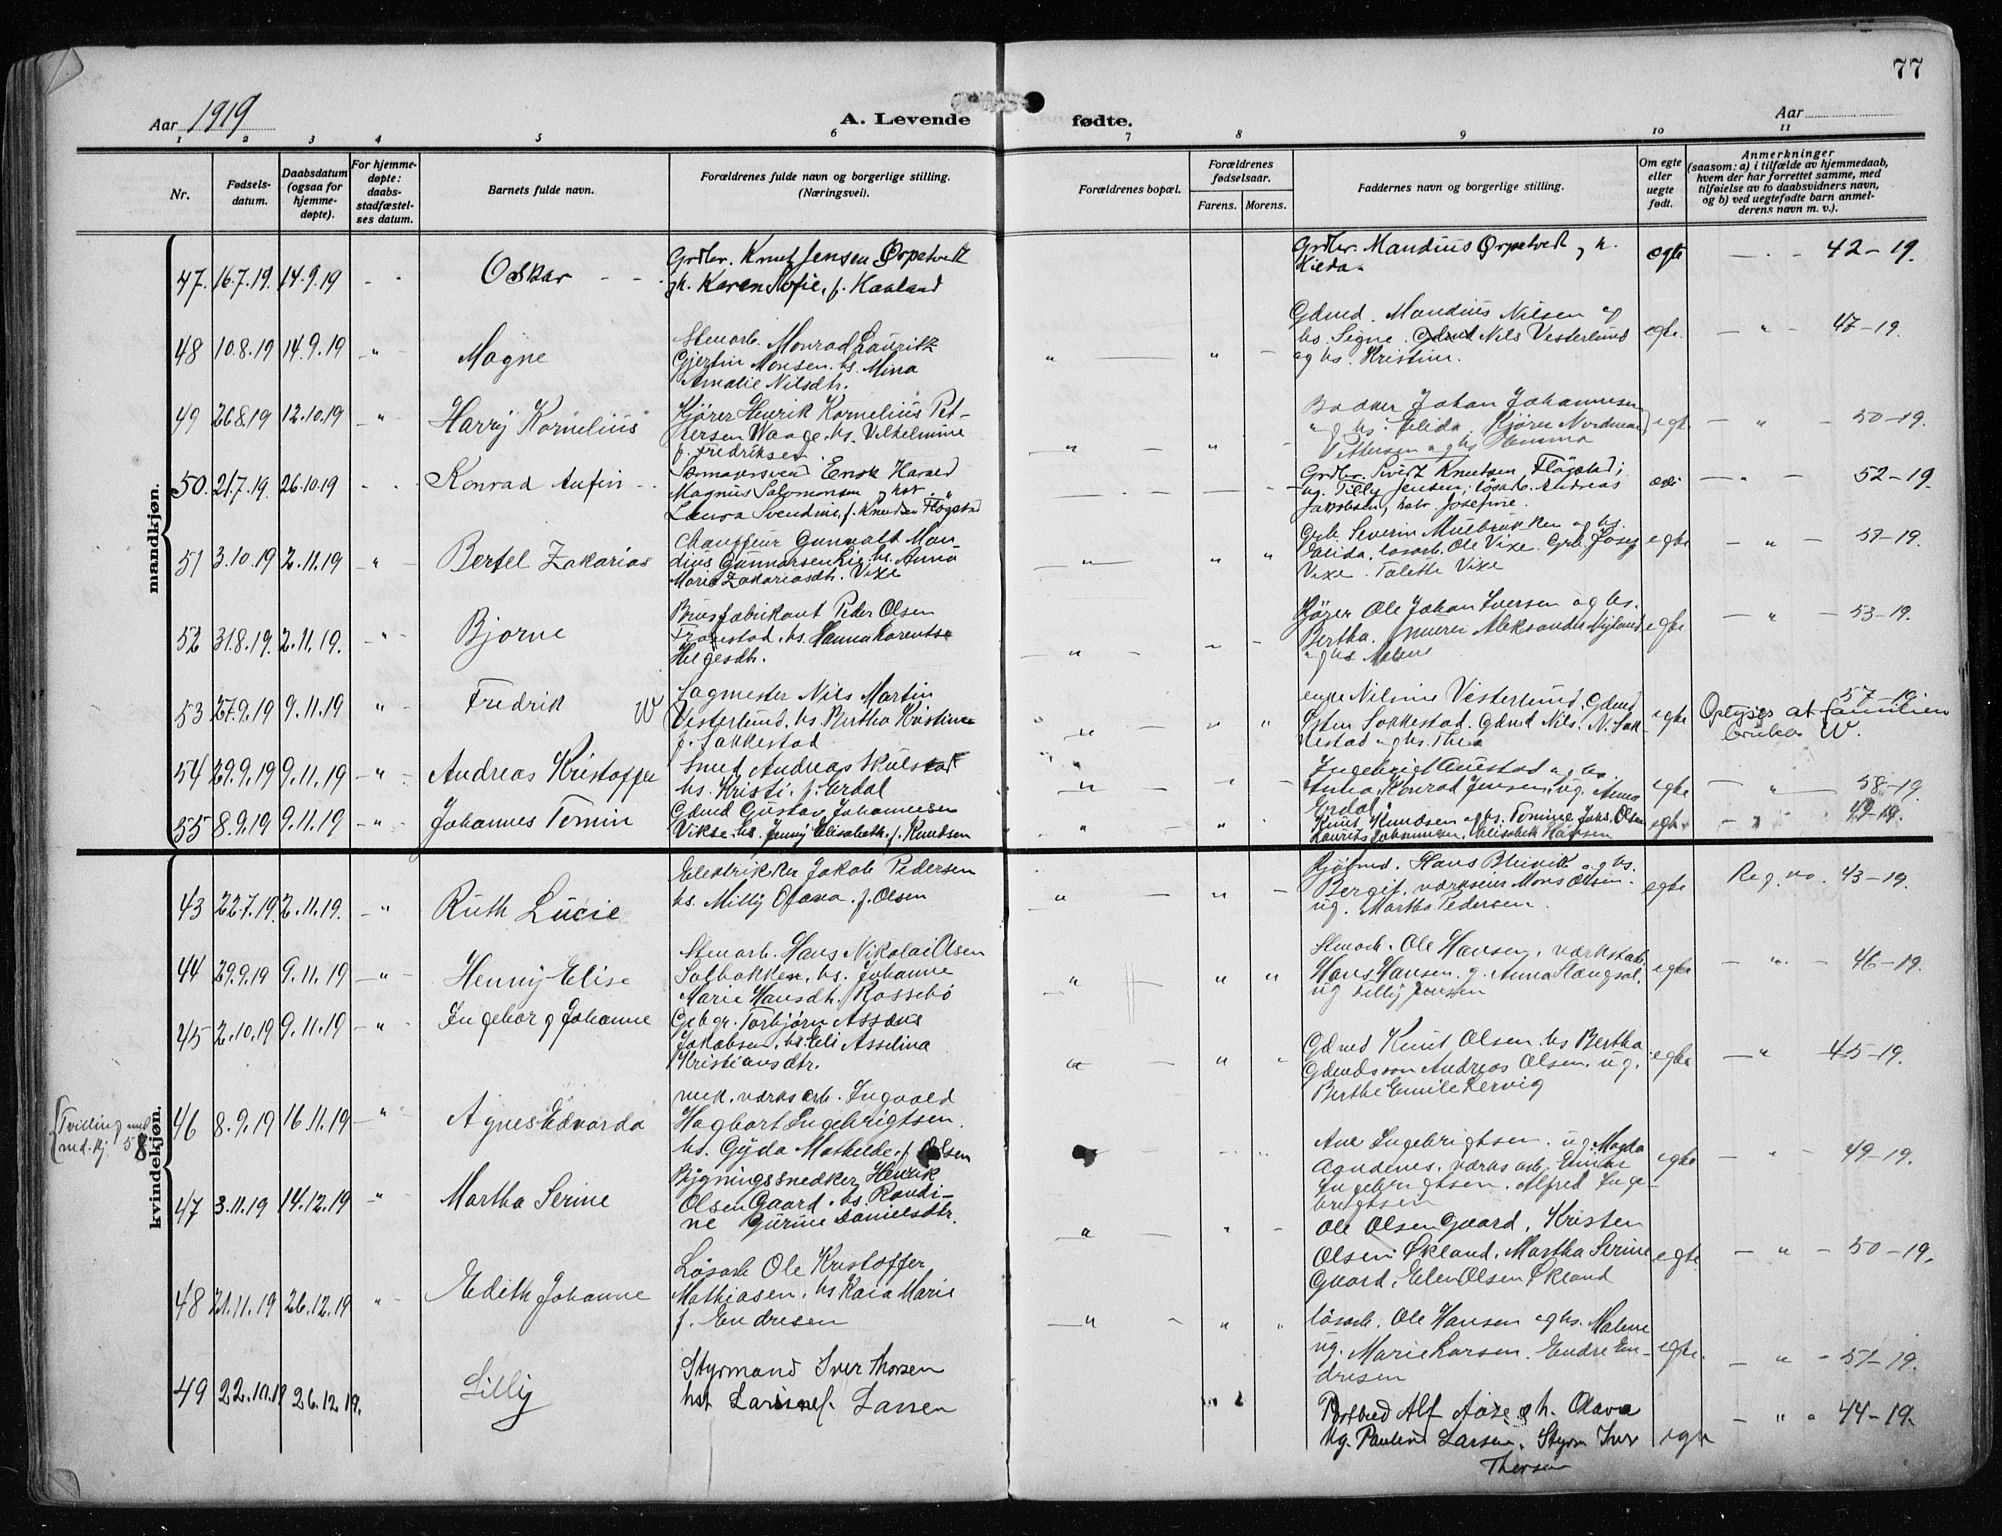 77
Aar 1919
A. Levende fødte.
Aar
1 2 3 4 5 6 7 8 9 10 11
Nr.
Fødsels-
datum.
Daabsdatum
(ogsaa for
hjemme-
døpte).
For hjemme-
døpte:
daabs-
stadfæstel-
ses datum.
Barnets fulde navn.
Forældrenes fulde navn og borgerlige stilling.
(Næringsvei).
Forældrenes bopæl.
Forældrenes
fødselsaar.
Farens. Morens.
Faddernes navn og borgerlige stilling.
Om egte
eller
uegte
født.
Anmerkninger
(saasom: a) i tilfælde av hjemmedaab,
hvem der har forrettet samme, med
tilføielse av to daabsvidners navn,
og b) ved uegtefødte barn anmel-
derens navn m. v.).
mandkjøn.
47. 16.7.19. 14.9.19 Oskar
Grdbr. Knut Jensen Ørpetvedt
h. Karen Sofie, f. Kauland
Grdbr. Mandius Ørpetvedt, h.
Kilda.
egte
42-19.
48 10.8.19 14.9.19 Magne
Stenarb. Monrad Lauritz
Gjertin Monsen. hs. Mina
Amalie Nilsdtr.
Gdmd. Mandius Nilsen og
hs. Signe. Gdmd Nils Vesterlund
og hs. Kristine.
egte.
47-19.
49 26.8.19 12.10.19 Harry Kornelius
Kjører Henrik Kornelius Pet-
tersen Waage. hs. Vilhelmine
f. Fredriksen
Bødker Johan Johannesen
og hs. Elida. Kjører Nordman
Pettersen og hs Emma
egte
50-19.
50. 21.7.19. 26.10.19 Konrad Anfin
Harald
Magnus Salomonsen, hst.
Laura Svendine, f. Knudsen Fløgstad
Grdbr. Knutsen, Fløgstad;
hs. Tilly Jensen; løsarb. Andreas
Jakobsen, hst. Josefine.
52-19.
51 3.10.19 2.11.19 Bertel Zakarias
Chauffeur Gunvald Man-
dius Gunnarsen hs. Anna
Marie Zakariasdtr. Vixe
Grb. Severin og hs.
Elida. løsarb. Ole Vixe. Grb. Josef
Vixe. Talette Vixe
egte
51-19.
52 31.8.19. 2.11.19. Bjarne
Brusfabrikant Peder Olsen
hs. Hanna Karentse
Helgesdtr.
Kjører Ole Johan Iversen og hs.
Bertha. Murer Aleksander Nyland
og hs Malene
egte
53-19.
53 27.9.19 9.11.19 Fredrik W
Sagmester Nils Martin
Vesterlund, hs. Bertha Kristine
f. Sakkestad
enke Nilsine Vesterlund, Gdmd
Sakkestad. Gdmd Nils. N. Sak-
kestad og hs. Thea
egte
57-19
Oplyses at familien
bruker W.
54 29.9.19 9.11.19 Andreas Kristoffer
Smed Andreas Skulstad
hs. Kristi. f. Erdal
Ingebrigt og hs
Anna Konrad Jensen, ug. Anna
Erdal.
egte
58-19.
55 8.9.19 9.11.19 Johannes Tomin
Gdmd Gustav Johannesen
Vikse hs. Jenny Elisabeth. f. Knudsen
Knut Knudsen og hs. Tomine Johs. Olsen
Laurits Johannesen. Elisabeth Hansen
egte
49-19.
kvindekjøn.
43 22.7.19. 2.11.19. Ruth Lucie
Elektriker Jakob Pedersen
hs. Milly Olava. f. Olsen
Kjøbmd. Hans Bleivik og hs.
Bergit. værkseier Mons Olsen.
ug. Martha Pedersen.
egte
Reg. no. 43-19.
44 29.9.19 9.11.19 Henny Elise
Stenarb. Hans Nikolai Olsen
Solbakken. hs. Johanne
Marie Hansdtr. Rossebø
Stenarb. Ole Hansen, værkstab.
Hans Hansen. g. Anna
ug Lilly Jensen
egte
46-19.
45 2.10.19 9.11.19 Ingeborg Johanne
Gebgr. Torbjørn Assens
Jakobsen. hs. Eli Asselina
Kristiansdtr.
Gdmd Knut Olsen. hs Bertha
Gdmdsson Andreas Olsen. ug.
Berthe Emilie Lervig
egte
45-19.
Tvilling med
md.kj. 58
46 8.9.19 16.11.19 Agnes Edvarda
mek. værksarb. Ingvald
Hagbart Ingebrigtsen.
hs. Gyda Mathilde f. Olsen
Ane Ingebrigtsen. ug. Magda
Agudenes. værksarb. Einar
Ingebrigtsen. Alfred Inge-
brigtsen
egte
49-19.
47 3.11.19 14.12.19 Martha Serine
Bygningssnedker Henrik
Olsen Gaard. hs. Randi-
ne Gurine Danielsdtr.
Ole Olsen Gaard, Kristen
Olsen Økland. Martha Serine
Gaard, Elen Olsen Økland
egte.
50-19.
48 21.11.19 26.12.19 Edith Johanne
Løsarb Ole Kristoffer
Mathiasen. hs Kaia Marie
f. Endresen
løsarb. Ole Hansen og hs. Malene
ug. Marie Larsen. Endre En-
dresen
egte.
51-19.
49 22.10.19 26.12.19. Lilly
Styrmand Iver Thorsen
hst Larine f. Larsen
Postbud Alf h. Olava
Ug. Pauline Larsen. Styrm Iver
Thorsen
egte
44-19.